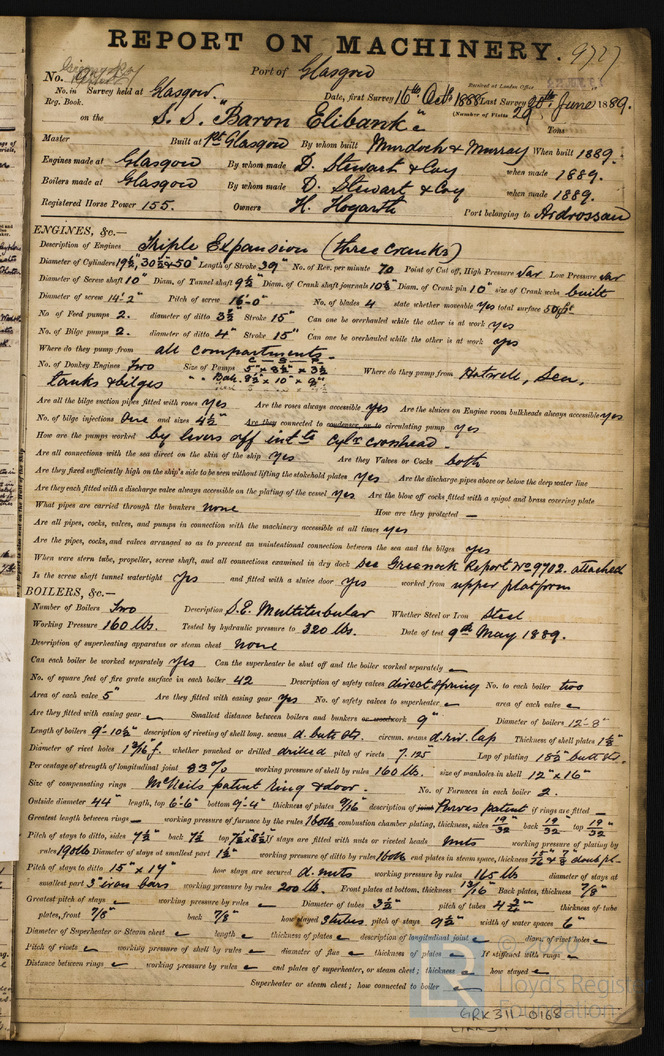 REPORT ON MACHINERY. 9727
No. Port of Glasgow
Received at London Office
No. in Survey held at Glasgow. Date, first Survey 16th Octr 1888 Last Survey 20th June 1889.
Reg. Book. (Number of Visits 29
on the S.S. "Baron Elibank" Tons
Master Built at Pt Glasgow By whom built Murdoch & Murray When built 1889.
Engines made at Glasgow By whom made D. Stewart & Coy when made 1889.
Boilers made at Glasgow By whom made D. Stewart & Coy when made 1889.
Registered Horse Power 155. Owners H. Hogarth Port belonging to Ardrossan
ENGINES, &c.—
Description of Engines Triple Expansion (three cranks)
Diameter of Cylinders 19½, 30½ & 50" Length of Stroke 39" No. of Rev. per minute 70 Point of Cut off, High Pressure Var Low Pressure Var
Diameter of Screw shaft 10" Diam. of Tunnel shaft 9½ Diam. of Crank shaft journals 10¼" Diam. of Crank pin 10" size of Crank webs built
Diameter of screw 14-2" Pitch of screw 16-0" No. of blades 4 state whether moveable yes total surface
No. of Feed pumps 2. diameter of ditto 3½ Stroke 15" Can one be overhauled while the other is at work yes
No. of Bilge pumps 2. diameter of ditto 4" Stroke 15" Can one be overhauled while the other is at work yes
Where do they pump from all compartments.
No. of Donkey Engines Two Size of Pumps 5" x 8½" x 3½ Where do they pump from Hotwell, Sea,
tanks & bilges " " Ball. 8½" x 10" x 9"
Are all the bilge suction pipes fitted with roses yes Are the roses always accessible yes Are the sluices on Engine room bulkheads always accessible yes
No. of bilge injections One and sizes 4½" Are they connected to condenser, or to circulating pump yes
How are the pumps worked by levers off intte Cylr crosshead
Are all connections with the sea direct on the skin of the ship yes Are they Valves or Cocks both
Are they fixed sufficiently high on the ship's side to be seen without lifting the stokehold plates yes Are the discharge pipes above or below the deep water line
Are they each fitted with a discharge valve always accessible on the plating of the vessel yes Are the blow off cocks fitted with a spigot and brass covering plate
What pipes are carried through the bunkers none How are they protected —
Are all pipes, cocks, valves, and pumps in connection with the machinery accessible at all times yes
Are the pipes, cocks, and valves arranged so as to prevent an unintentional connection between the sea and the bilges yes
When were stern tube, propeller, screw shaft, and all connections examined in dry dock See Greenock Report No 9702. attached
Is the screw shaft tunnel watertight yes and fitted with a sluice door yes worked from upper platform
BOILERS, &c.—
Number of Boilers Two Description S.E. Multitubular Whether Steel or Iron Steel
Working Pressure 160 lbs. Tested by hydraulic pressure to 320 lbs. Date of test 9th May 1889.
Description of superheating apparatus or steam chest none
Can each boiler be worked separately yes Can the superheater be shut off and the boiler worked separately —
No. of square feet of fire grate surface in each boiler 42 Description of safety valves direct spring No. to each boiler two
Area of each valve 5" Are they fitted with easing gear yes No. of safety valves to superheater — area of each valve —
Are they fitted with easing gear — Smallest distance between boilers and bunkers or woodwork 9" Diameter of boilers 12-8"
Length of boilers 9'-10½" description of riveting of shell long. seams d. butt str. circum. seams d.riv. lap Thickness of shell plates
Diameter of rivet holes whether punched or drilled drilled pitch of rivets 7.125" Lap of plating 18½" butt str.
Per centage of strength of longitudinal joint 83% working pressure of shell by rules 160 lb. size of manholes in shell 12" x 16"
Size of compensating rings McNeils patent ring & door. No. of Furnaces in each boiler 2.
Outside diameter 44" length, top 6'-6" bottom 9'-4" thickness of plates 9/16 description of joint Purves patent if rings are fitted —
Greatest length between rings — working pressure of furnace by the rules 160 lb combustion chamber plating, thickness, sides 19/32 back 19/32 top 19/32
Pitch of stays to ditto, sides 7½ back 7½ top If stays are fitted with nuts or riveted heads nuts working pressure of plating by
rules 190 lb Diameter of stays at smallest part working pressure of ditto by rules 160 lb end plates in steam space, thickness
Pitch of stays to ditto 15" x 14" how stays are secured d. nuts working pressure by rules 165 lb diameter of stays at
smallest part 3" iron bars working pressure by rules 200 lb. Front plates at bottom, thickness 13/16 Back plates, thickness 7/8"
Greatest pitch of stays — working pressure by rules — Diameter of tubes 3½" pitch of tubes 4 thickness of tube
plates, front 7/8" back 7/8" how stayed S tubes. pitch of stays 9½" width of water spaces 6"
Diameter of Superheater or Steam chest — length — thickness of plates — description of longitudinal joint — diam. of rivet holes —
Pitch of rivets — working pressure of shell by rules — diameter of flue — thickness of plates — If stiffened with rings —
Distance between rings — working pressure by rules — end plates of superheater, or steam chest; thickness — how stayed —
Superheater or steam chest; how connected to boiler —
Lloyd's Register
Foundation
GRK311-0168